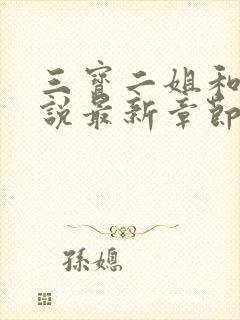 三寶二姐和
說最新章節
孫媳